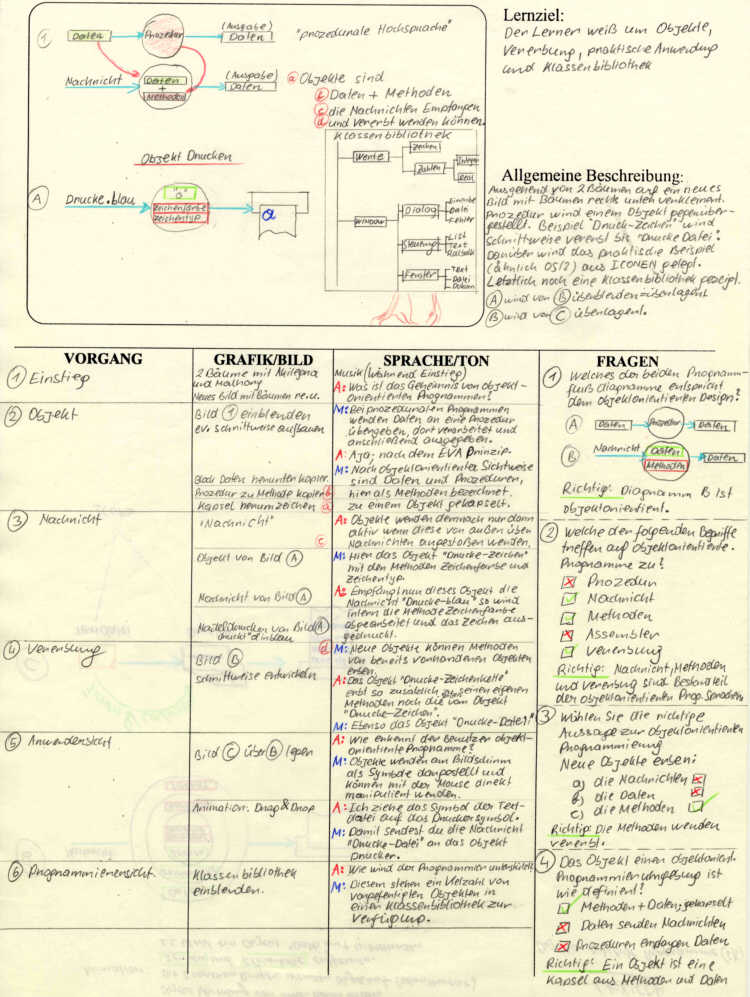 Lernziel:
Der Lerner weiß um Objekte,
Vererbung, praktische Anwendung
und Klassenbibliothek
1 Daten Prozedur (Ausgabe) Daten "prozedurale Hochsprache"
Nachricht Daten + Methoden (Ausgabe) Daten
a Objekte sind
b Daten + Methoden
c die Nachrichten Empfangen
d und vererbt werden können.
Objekt Drucken
A Drucke.blau "a" Zeichenfarbe Zeichentyp a
Klassenbibliothek
Werte
Zeichen
Zahlen
Integer
Real
Window
Dialog
Eingabe
Datei
Fehler
Steuerung
List
Text
Rollbalk
Fenster
Text
Datei
Dokum
Allgemeine Beschreibung:
Ausgehend von 2 Bäumen auf ein neues
Bild mit Bäumen rechts unten verkleinert.
Prozedur wird einem Objekt gegenüber-
gestellt. Beispiel "Druck-Zeichen" wird
Schrittweise vererbt bis "Drucke Datei".
Darüber wird das praktische Beispiel
(ähnlich OS/2) aus ICONEN gelegt.
Letztlich noch eine Klassenbibliothek gezeigt.
A wird von B überblenden=überlagert
B wird von C überlagert.
VORGANG GRAFIK/BILD SPRACHE/TON FRAGEN
1 Einstieg
2 Bäume mit
und
Neues Bild mit Bäumen re.u.
Musik (während Einstieg)
A: Was ist das Geheimnis von objekt-
orientierten Programmen?
2 Objekt
Bild 1 einblenden
ev. schrittweise aufbauen
Block Daten herunterkopier.
Prozedur zu Methode kopier b
Kapsel herumzeichen a
M: Bei prozeduralen Programmen
werden Daten an eine Prozedur
übergeben, dort verarbeitet und
anschließend ausgegeben.
A: Aja, nach dem EVA Prinzip.
M: Nach objektorientierter Sichtweise
sind Daten und Prozeduren,
hier als Methoden bezeichnet
zu einem Objekt gekapselt.
3 Nachricht
"Nachricht"
c
Objekt von Bild A
Nachricht von Bild A
Nadeldrucken von Bild A
"druckt" einblau
A: Objekte werden demnach nur dann
aktiv wenn diese von außen über
Nachrichten angestoßen werden.
M: Hier das Objekt "Drucke-Zeichen"
mit den Methoden Zeichenfarbe und
Zeichentyp.
A: Empfängt nun dieses Objekt die
Nachricht "Drucke-blau" so wird
intern die Methode Zeichenfarbe
abgearbeitet und das Zeichen aus-
gedruckt.
4 Vererbung
d
Bild B
schrittweise entwickeln
M: Neue Objekte können Methoden
von bereits vorhandenen Objekten
erben.
A: Das Objekt "Drucke-Zeichenkette"
erbt so zusätzlich zu seinen eigenen
Methoden noch die vom Objekt
"Drucke-Zeichen".
M: Ebenso das Objekt "Drucke-Datei"
5 Anwendersicht
Bild C über B legen
Animation: Drag & Drop
A: Wie erkennt der Benutzer objekt-
orientierte Programme?
M: Objekte werden am Bildschirm
als Symbole dargestellt und
können mit der Mouse direkt
manipuliert werden.
A: Ich ziehe das Symbol der Text-
datei auf das Druckersymbol.
M: Damit sendest du die Nachricht
"Drucke-Datei" an das Objekt
Drucker.
6 Programmierersicht
Klassenbibliothek
einblenden.
A: Wie wird der Programmier unterstützt
M: Diesem stehen ein Vielzahl von
vorgefertigten Objekten in
einer Klassenbibliothek zur
Verfügung.
1 Welches der beiden Programm-
fluß diagramme entspricht
dem objektorientierten Design?
A Daten Prozedur Daten
B Nachricht Daten Methoden Daten
Richtig: Diagramm B ist
objektorientiert.
2 Welche der folgenden Begriffe
treffen auf objektorientierte
Programme zu?
Prozedur
Nachricht
Methoden
Assembler
Vererbung
Richtig: Nachricht, Methoden
und Vererbung sind Bestandteil
der objektorientierten Prog.Sprachen
3 Wählen Sie die richtige
Aussage zur objektorientierten
Programmierung
Neue Objekte erben:
a) die Nachrichten
b) die Daten
c) die Methoden
Richtig: Die Methoden werden
vererbt.
4 Das Objekt einer objektorient.
Programmierumgebung ist
wie definiert?
Methoden + Daten, gekapselt
Daten senden Nachrichten
Prozeduren empfangen Daten
Richtig: Ein Objekt ist eine
Kapsel aus Methoden und Daten